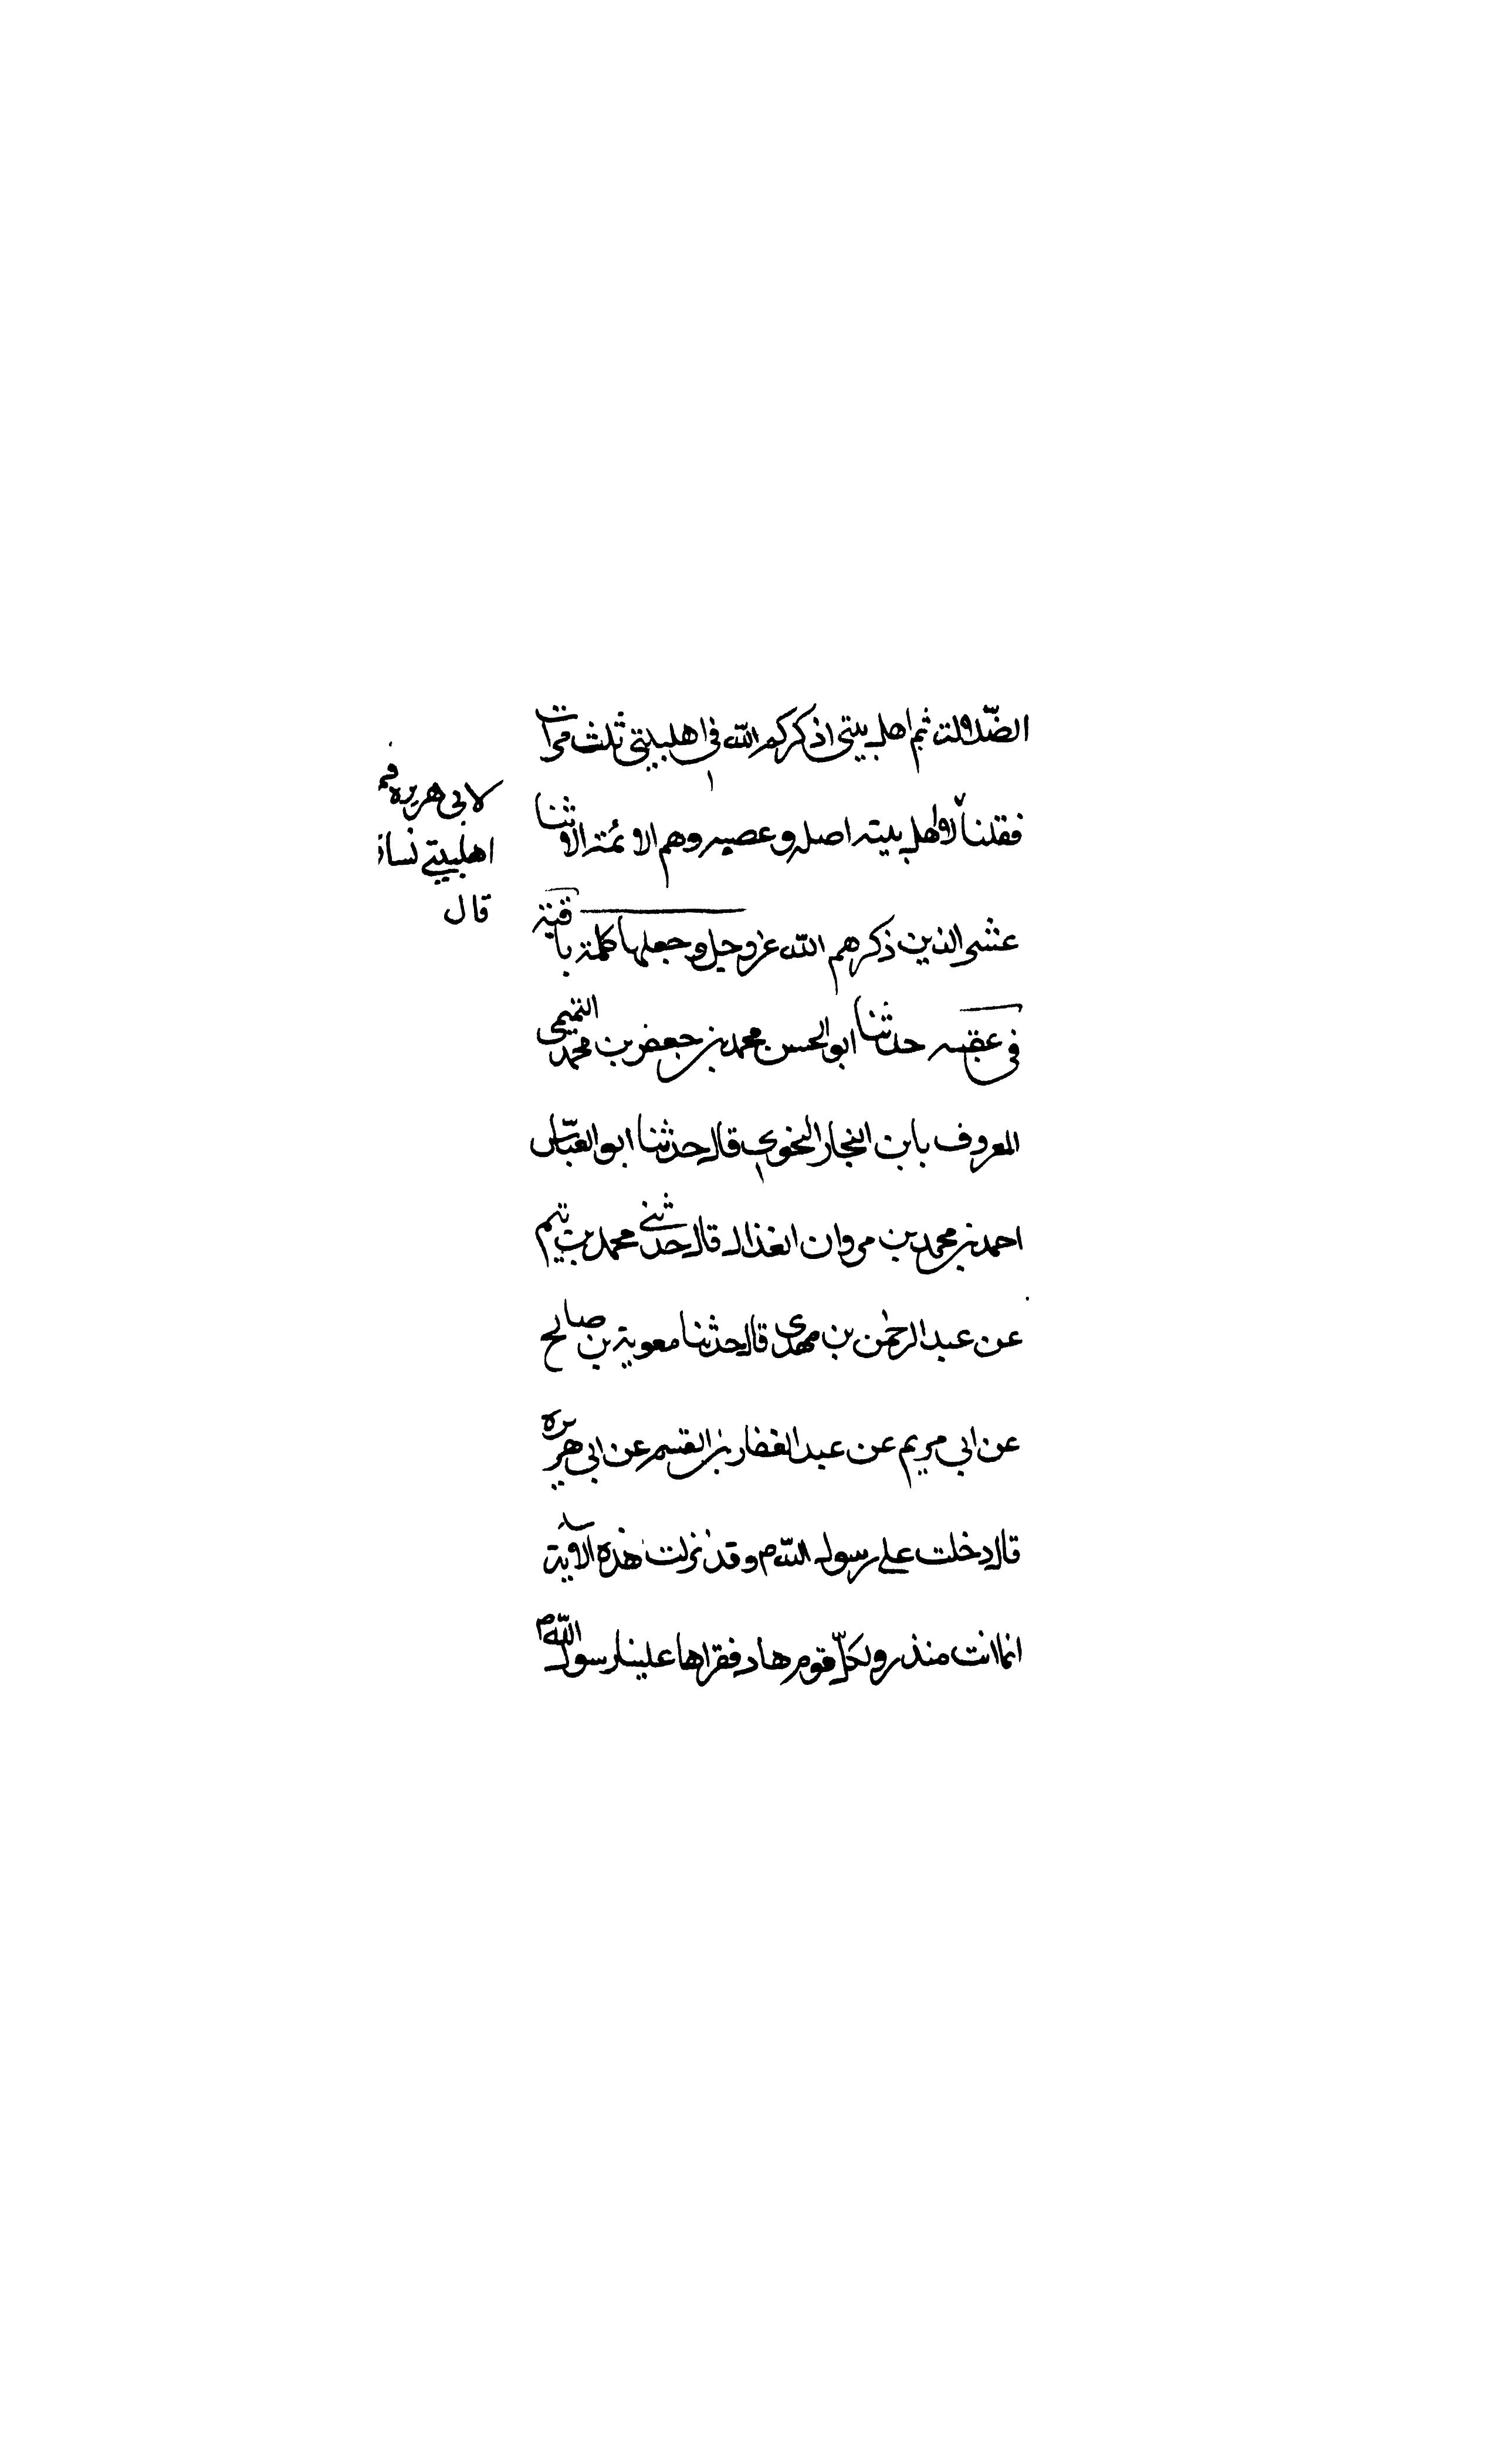 الضّلالة ثم اهل بيتى اذكركم الله فى اهلبيتى ثلث مرات
فقلنا لاهل بيته اصله وعصبه وهم الائمة الاثنا
عشر الذين ذكرهم الله عز وجل وجعلها كلمة باقية
فى عقبه حدثنا ابو الحسن محمد بن جعفر بن محمد التميمى
المعروف بابن النجار النحوى قال حدثنا ابو العبّاس
احمد بن محمد بن مروان الغذال قال حدثنى محمد بن تيم
عن عبد الرحمن بن مهدى قال حدثنا معوية بن صالح
عن ابي مريم عن عبد الغفار بن القسم عن ابى هريره
قال دخلت على رسول الله ص وقد نزلت هذه الآية
انما انت منذر ولكلّ قوم هاد فقراها علينا رسول الله ص
لابى هريره
اهلبيتى نساؤ
قال